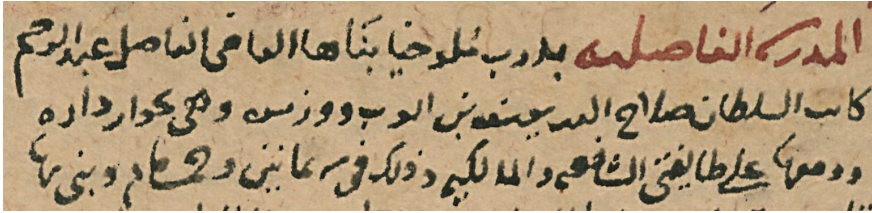 المدرسة الفاضلية بدرب ملوخيا بناها القاضى الفاضل عبد الرحيم
كاتب السلطان صلاح الدين يوسف بن ايوب ووزيره وهي بجوار داره
ووقفها على طايفتى الشافعية والمالكية وذلك فى سنة ثمانين وخمسمائة وبنى بها